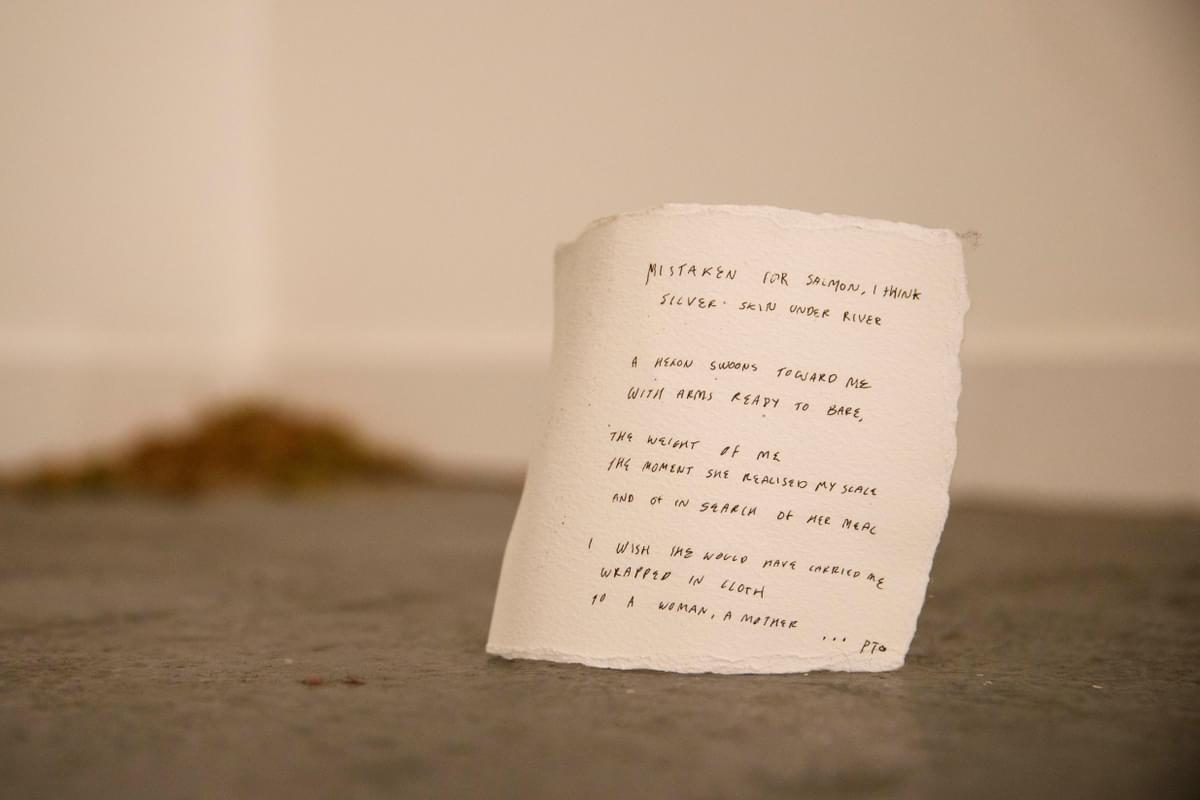 MISTAKEN FOR SALMON, I THINK
SILVER SKIN UNDER RIVER
A HERON SWOONS TOWARD ME
WITH ARMS READY TO BARE,
THE WEIGHT OF ME
THE MOMENT SHE REALISED MY SCALE
AND OF IN SEARCH OF HER MEAL
I WISH SHE WOULD HAVE CARRIED ME
WRAPPED IN CLOTH
TO A WOMAN, A MOTHER
... PTO